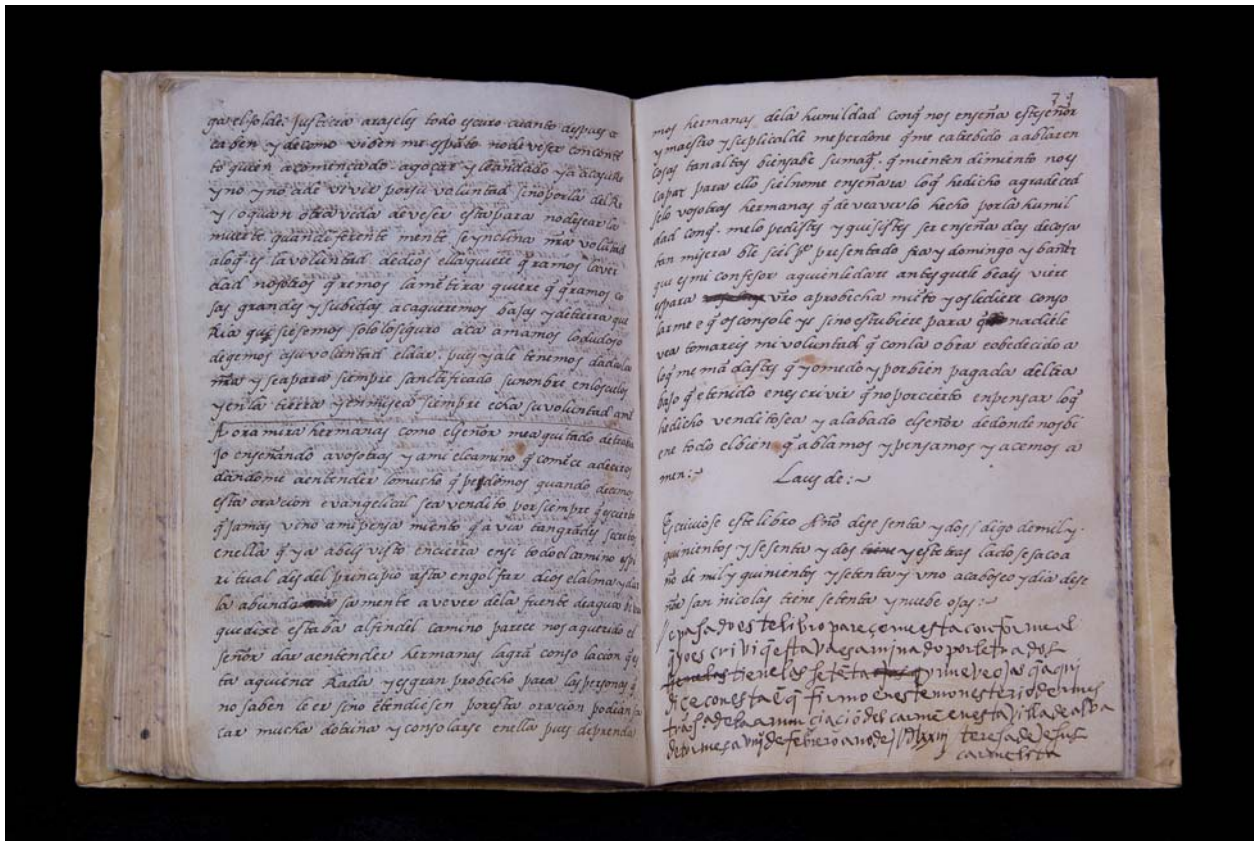 ga el sol de Justicia araseles todo escuro cuanto despues a
caben y de como viben me espato no deve ser con conte
to quien a començado a goçar y leandado ya a ca
y no y no a de vivir por su voluntad sino por la del Re
y / o quan otra vida deve ser esta para no desear la
muerte quan diferente mente se ynclina nra voluntad
a lo q es la voluntad de dios ella quiere q qramos la ver
dad nosotros qremos la metira quiere q qramos co
sas grandes y subidas aca queremos bajas y de tierra que
Ria que siesemos solo lo siguro aca amamos lo dudoso
degemos a su voluntad el dar. pues ya le tenemos dada la
nra y sea para siempre santificado su nonbre en los cielos
y en la tierra y en mi sea siempre echa su voluntad amē
A ora mira hermanas como el señor mea quitado de traba
Jo enseñando a vosotras y a mi el camino q comēce a deciros
dandome a entender lo mucho q pedimos quando decimos
esta oracion evangelical sea vendito por siempre q es cierto
q Jamas vino a mi pensa miento q a via tan grādes secretos
en ella q ya abeis visto encierra en si todo el camino espi
ri tual des del principio asta engolfar dios el alma y dar
la abunda sa mente a vever de la fuente de agua
que dixe estaba al fin del camino parece nos a querido el
señor dar a entender hermanas la grā conso lacion q es
ta aqui ence Rada y es gran probecho para las personas q
no saben leer si no ētendiesen por esta oracion podian sa
car mucha dotrina y consolarse en ella pues deprenda
79
mos hermanas de la humildad con q nos enseña este señor
y maestro y suplicalde me perdone q me e atrebido a ablar en
cosas tan altas bien sabe su mag. q mi enten dimiento no es
capaz para ello si el no me enseñara lo q he dicho agradeced
selo vosotras hermanas q de ve averlo hecho por la humil
dad con q. me lo pedistes y quisistes ser enseña das de cosa
tan misera ble si el pe presentado fray domingo y bañez
que es mi confesor a quien le dare antes que le beais viere
es para vro aprobicha mieto y os le diere conso
larme e q os console ys si no estubiere para q nadie le
vea tomareis mi voluntad q con la obra e obedecido a
lo q me mā dastes q yo me do y por bien pagada del tra
bajo q e tenido en es crivir q no por cierto en pensar lo q
he dicho vendito sea y alabado el señor de donde nos bi
ene todo el bien q ablamos y pensamos y acemos a
men :~
Laus de :~
Escriviose este libro Año dese senta y dos / digo de mil y.
quinientos y sesenta y dos y este tras lado se saco a
ño de mil y quinientos y setenta y uno acabose oy dia dese
ñor san nicolas tiene setenta y nuebe ojas :~
e pasado este libro pareçeme esta conforme al
q yo escrivi q estava esaminado por letrados
tiene les setēta y nueve ojas q aqui
diçe con esta ē q firmo en este monesterio de nues
tra sa de la anunciaciō del carmē en esta villa de alva
de tormes a viij de febrero ano de MDlxxiij teresa de Jesus
carmelita